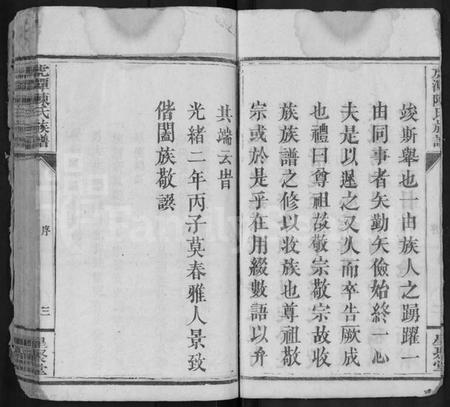 竣斯舉也一由族人之踴躍一
由同事者矢勤矢儉始終一心
夫是以遲之又久而卒告厥成
也禮曰尊祖故敬宗敬宗故收
族族譜之修以收族也尊祖敬
宗或於是乎在用綴數語以弁
其端云旹
光緒二年丙子莫春雅人景致
偕闔族敬譔
虎潭陳氏族譜
序
三
星聚堂